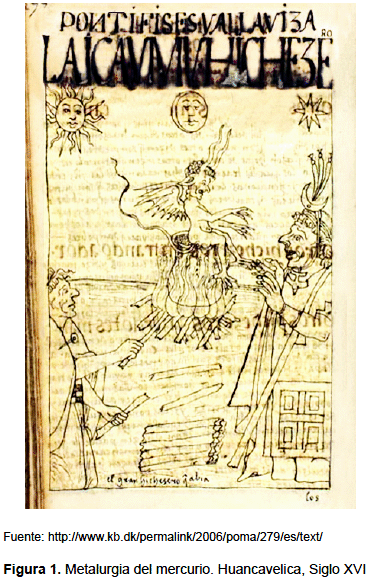 PONTIFISES VALLAVIZA
LAICAVMVHICHEZE
RO
el gran hichesero q̃ abia
los
Fuente: http://www.kb.dk/permalink/2006/poma/279/es/text/
Figura 1. Metalurgia del mercurio. Huancavelica, Siglo XVI